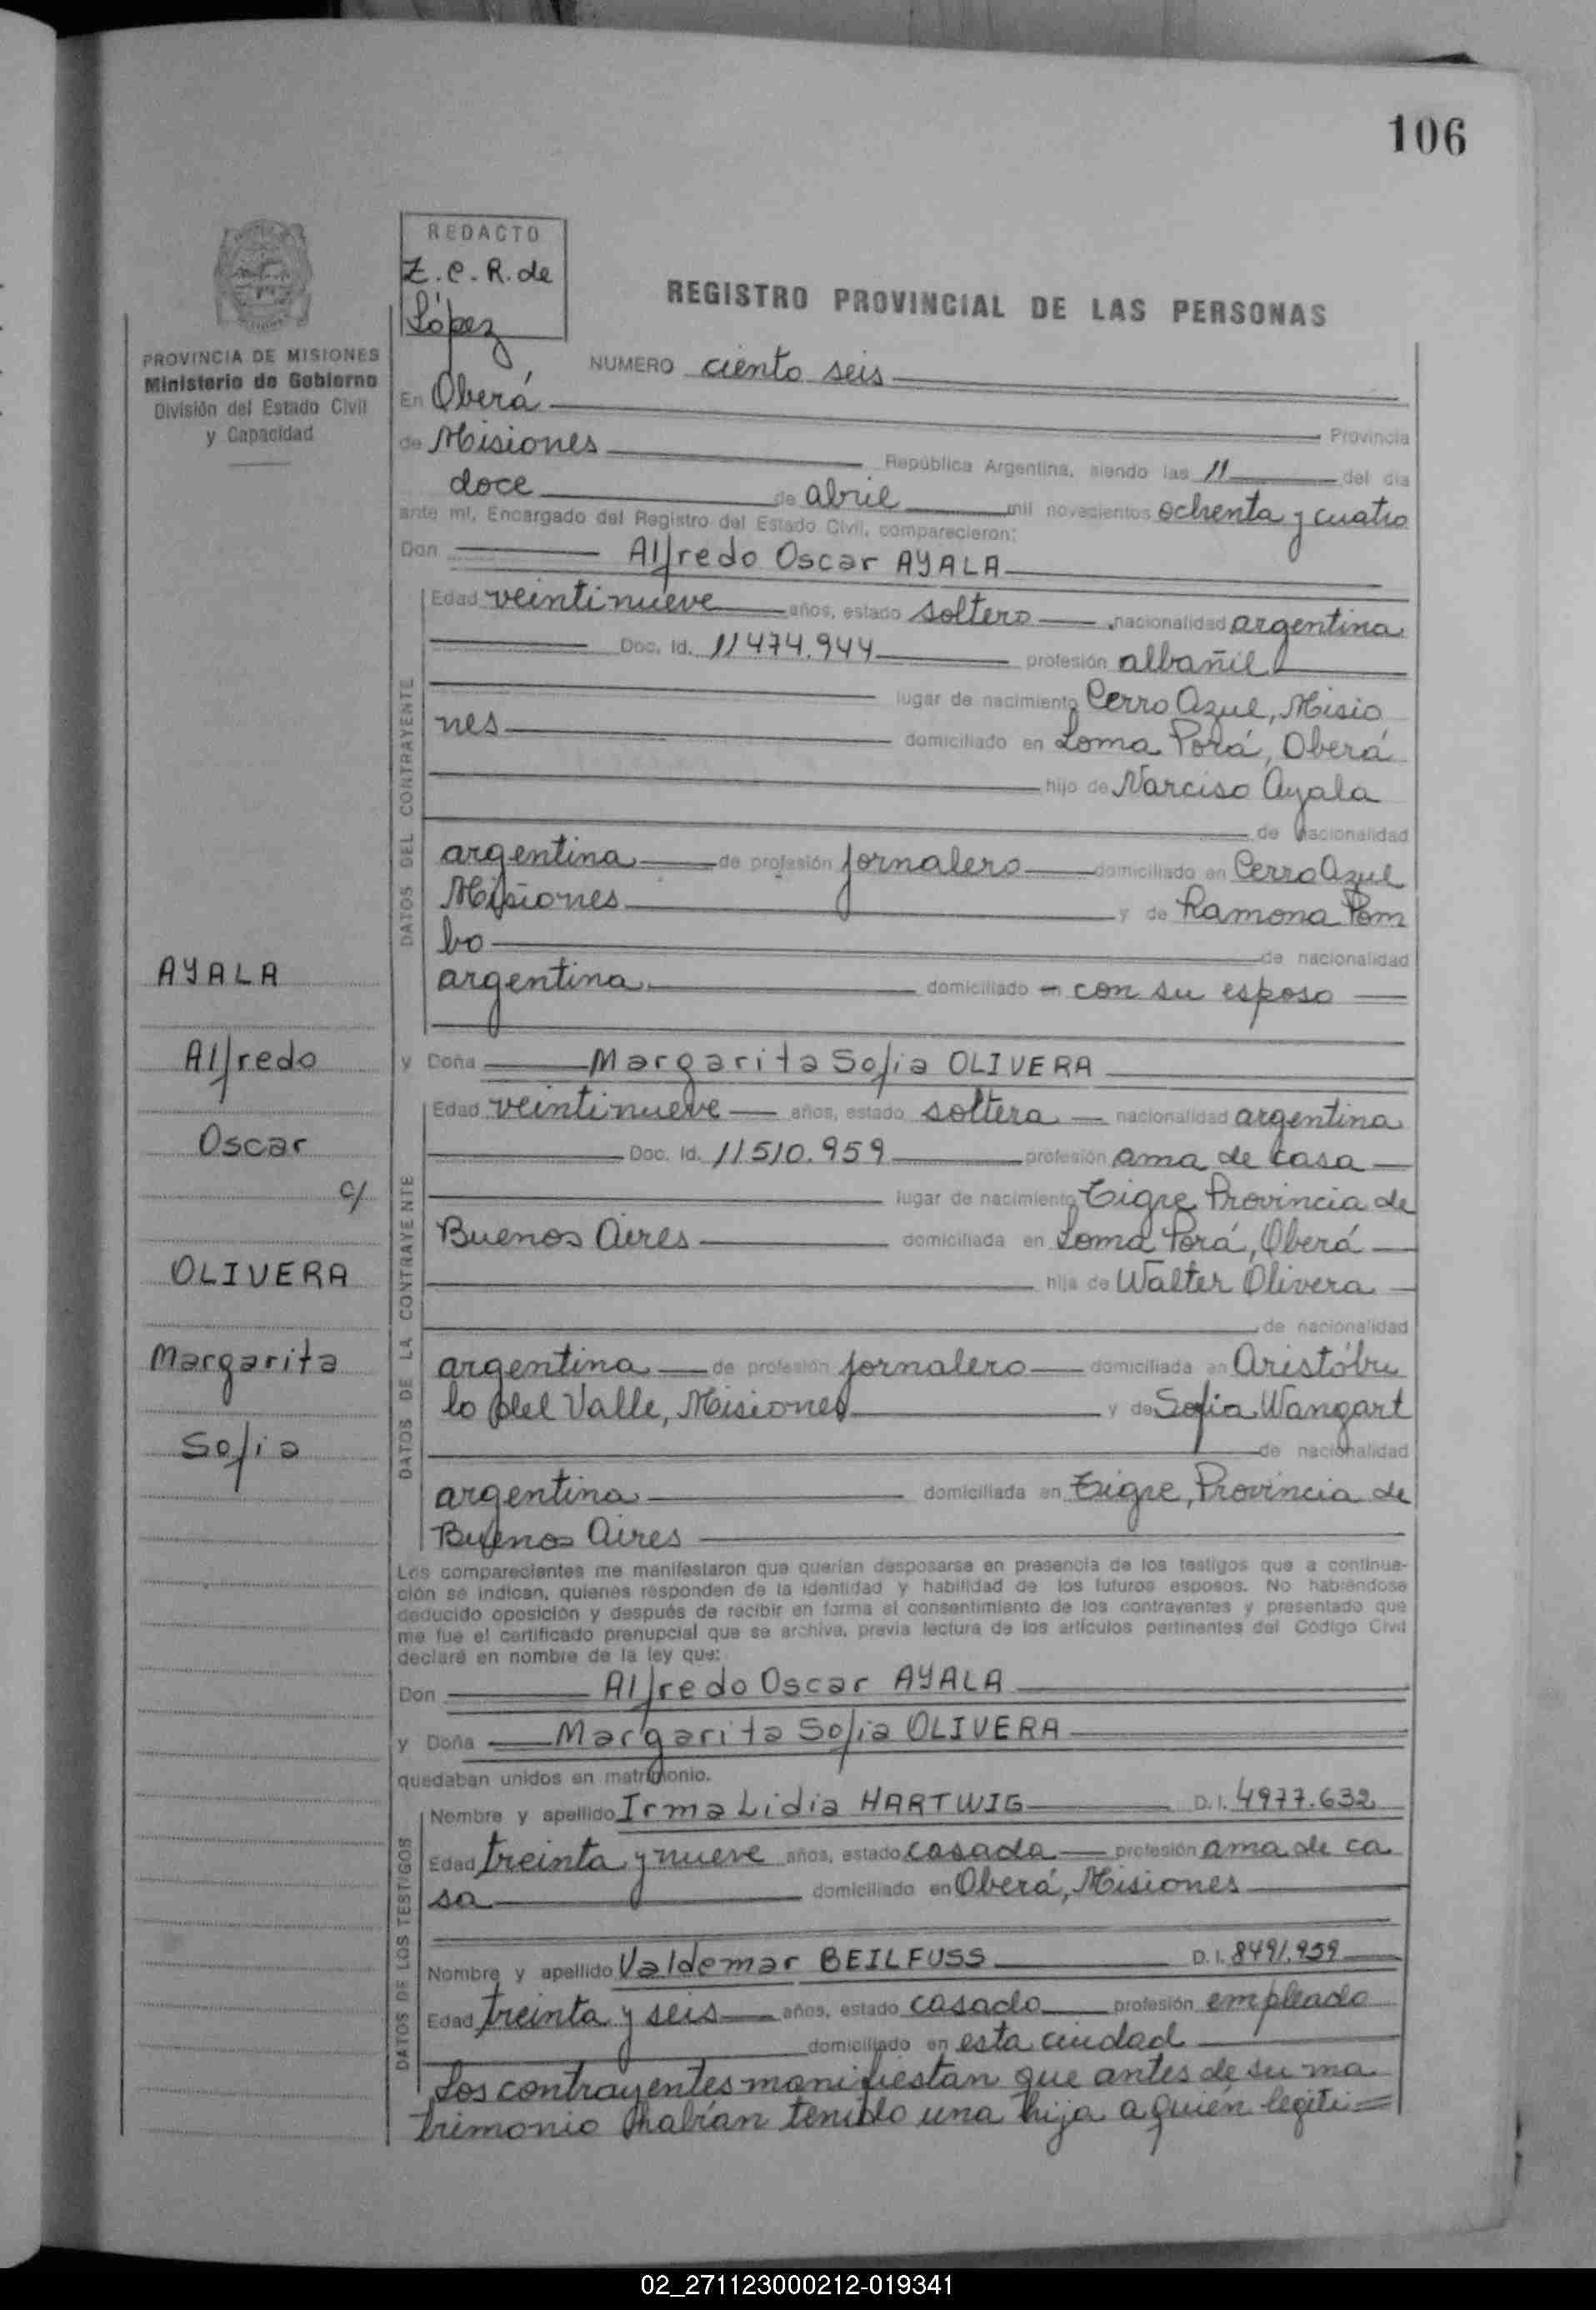 106
REDACTO
Z.C.R. de
López
REGISTRO PROVINCIAL DE LAS PERSONAS
PROVINCIA DE MISIONES
Ministerio de Gobierno
División del Estado Civil
y Capacidad
NUMERO ciento seis
En Oberá
Provincia
de Misiones República Argentina, siendo las 11 del día
doce de abril mil novecientos ochenta y cuatro
ante mí, Encargado del Registro del Estado Civil, comparecieron:
Don Alfredo Oscar AYALA
DATOS DEL CONTRAYENTE
Edad veintinueve años, estado soltero nacionalidad argentina
Doc. Id. 11474.944 profesión albañil
lugar de nacimiento Cerro Azul, Misio
nes domiciliado en Loma Porá, Oberá
hijo de Narciso Ayala
de nacionalidad
argentina de profesión jornalero domiciliado en Cerro Azul
Misiones y de Ramona Pom
bo de nacionalidad
argentina domiciliado en con su esposo
y Doña Margarita Sofia OLIVERA
DATOS DE LA CONTRAYENTE
Edad veintinueve años, estado soltera nacionalidad argentina
Doc. Id. 11510.959 profesión ama de casa
lugar de nacimiento Tigre Provincia de
Buenos Aires domiciliada en Loma Porá, Oberá
hija de Walter Olivera
de nacionalidad
argentina de profesión jornalero domiciliada en Aristóbu
lo del Valle, Misiones y de Sofia Wangart
de nacionalidad
argentina domiciliada en Tigre, Provincia de
Buenos Aires
Los comparecientes me manifestaron que querían desposarse en presencia de los testigos que a continua-
ción se indican, quienes responden de la identidad y habilidad de los futuros esposos. No habiéndose
deducido oposición y después de recibir en forma el consentimiento de los contrayentes y presentado que
me fue el certificado prenupcial que se archiva, previa lectura de los artículos pertinentes del Código Civil
declaré en nombre de la ley que:
Don Alfredo Oscar AYALA
y Doña Margarita Sofia OLIVERA
quedaban unidos en matrimonio.
DATOS DE LOS TESTIGOS
Nombre y apellido Irma Lidia HARTWIG D.I. 4977.632
Edad treinta y nueve años, estado casada profesión ama de ca
sa domiciliado en Oberá, Misiones
Nombre y apellido Valdemar BEILFUSS D.I. 8491.959
Edad treinta y seis años, estado casado profesión empleado
domiciliado en esta ciudad
Los contrayentes manifiestan que antes de su ma
trimonio habían tenido una hija a quién legiti=
AYALA
Alfredo
Oscar
c/
OLIVERA
Margarita
Sofia
02_271123000212-019341